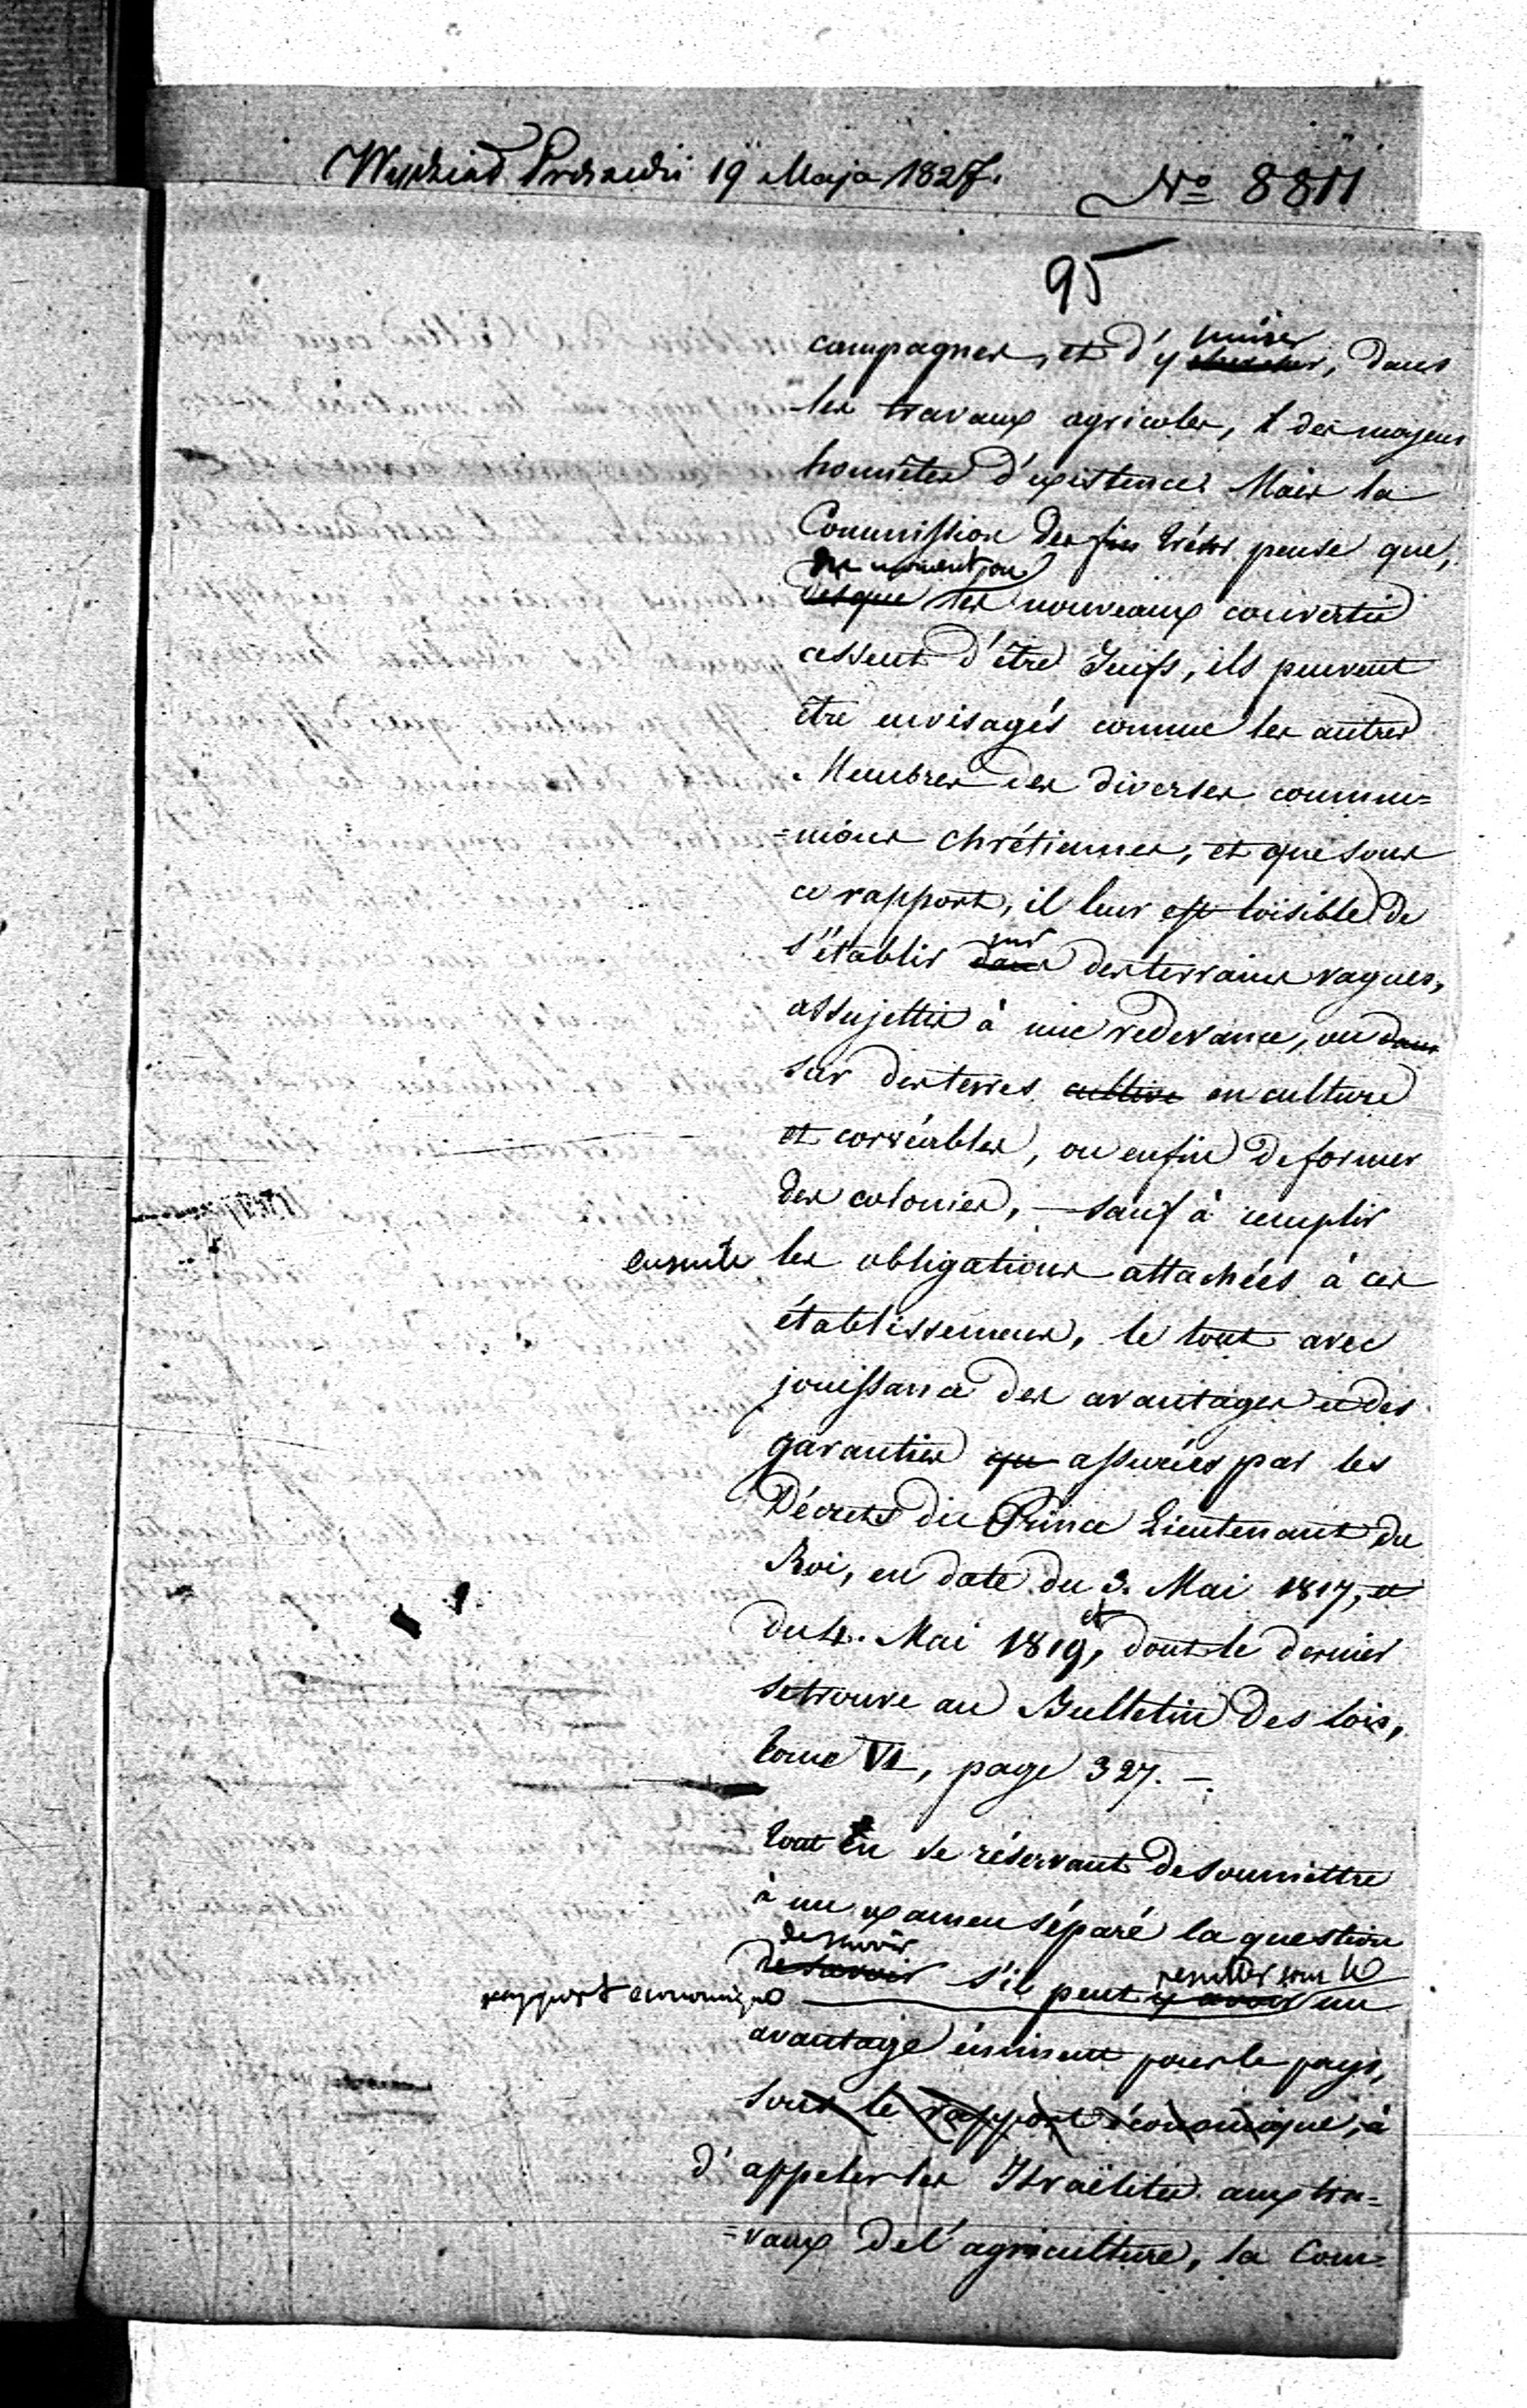 19 Maja 1827. No 8811
95
campagnes, et d'y puiser, dans
les travaux agricoles, des moyens
honnêtes d'existence. Mais la
Commission des fin trésor pense que,
du moment où
desque les nouveaux convertis
cessent d'être Juifs, ils peuvent
être envisagés comme les autres
Membres des diverses commu=
=nions chrétiennes, et que sous
ce rapport, il leur est loisible de
sur
s'établir dans des terrains vagues,
assujettis à une redevance, ou dans
sur des terres cultivé en culture
et corvéables, ou enfin de former
des colonies, — sauf à remplir
ensuite les obligations attachées à ces
établissemens, le tout avec
jouissance des avantages et des
garanties qu assurées par les
Décrets du Prince Lieutenant du
Roi, en date du 3. Mai 1817, et
du 4. Mai 1819, et dont le dernier
se trouve au Bulletin des lois,
tome VI, page 327. —
tout en se réservant de soumettre
à un examen séparé la question
de savoir
de savoir s'il peut y avoir un
resulter sous le
rapport economique
avantage éminent pour le pays,
sous le rapport économique, à
d'appeler les Israëlites aux tra=
=vaux de l'agriculture, la Com=